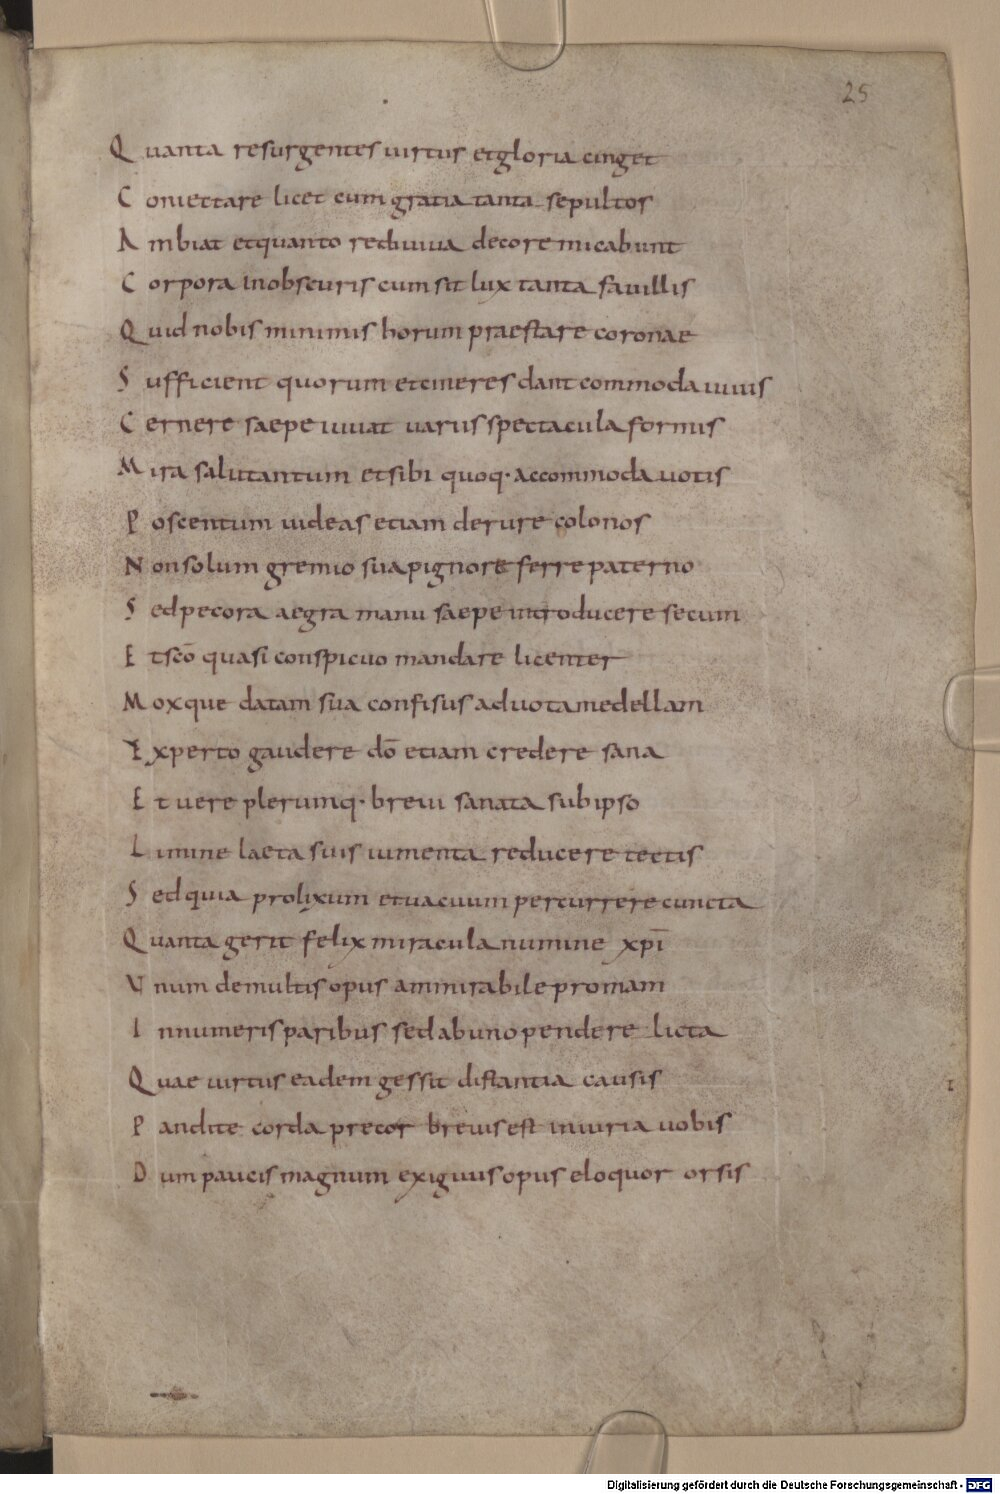 25
Quanta resurgentes uirtus etgloria cinget
Coniectare licet cum gratia tanta sepultos
Ambiat etquanto rediuiua decore micabunt
Corpora inobscuris cum sit lux tanta fauillis
Quid nobis minimis horum praestare coronae
Sufficient quorum etcineres dant commoda uiuis
Cernere saepe iuuat uariis spectacula formis
Mira salutantum etsibi quoq· accommoda uotis
Poscentum uideas etiam derure colonos
Nonsolum gremio sua pignore ferre paterno
Sedpecora aegra manu saepe introducere secum
Etscō quasi conspicuo mandare licenter
Moxque datam sua confisus aduota medellam
Experto gaudere dō etiam credere sana
Et uere plerumq· breui sanata sub ipso
Limine laeta suis iumenta reducere tectis
Sed quia prolixum etuacuum percurrere cuncta
Quanta gerit felix miracula numine xpī
Unum demultis opus ammirabile promam
Innumeris paribus sed abuno pendere licta
Quae uirtus eadem gessit distantia causis
Pandite corda precor breuis est iniuria uobis
Dum paucis magnum exiguus opus eloquor orsis
Digitalisierung gefördert durch die Deutsche Forschungsgemeinschaft - DFG